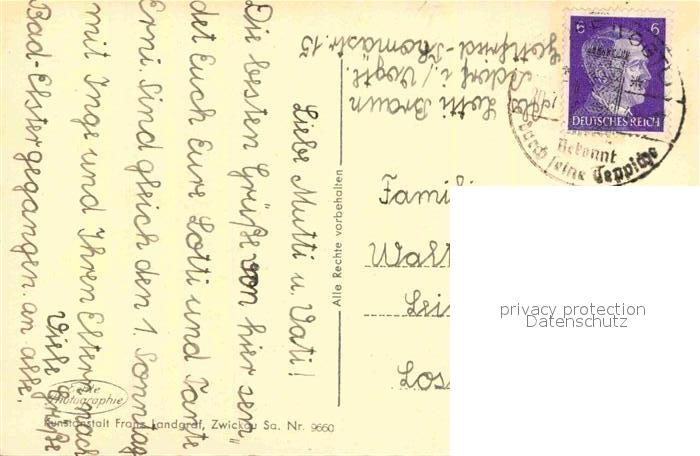 Liebe Mutti u. Vati!
Die besten Grüße von hier sen=
det Euch Eure Lotti und Tante
Erni. Sind gleich den 1. Sonntag
mit Inge und Ihren Eltern nach
Bad-Elster gegangen. an alle.
Viele Grüße
Abs Lotti Braun
Adorf i./ Vogtl.
Gottfried-Thomastr. 15
6 6
DEUTSCHES REICH
Bekannt
durch seine Teppiche
Alle Rechte vorbehalten
Fami
Walt
Lei
Los
privacy protection
Datenschutz
Echte
Photographie
Kunstanstalt Franz Landgraf, Zwickau Sa. Nr. 9660